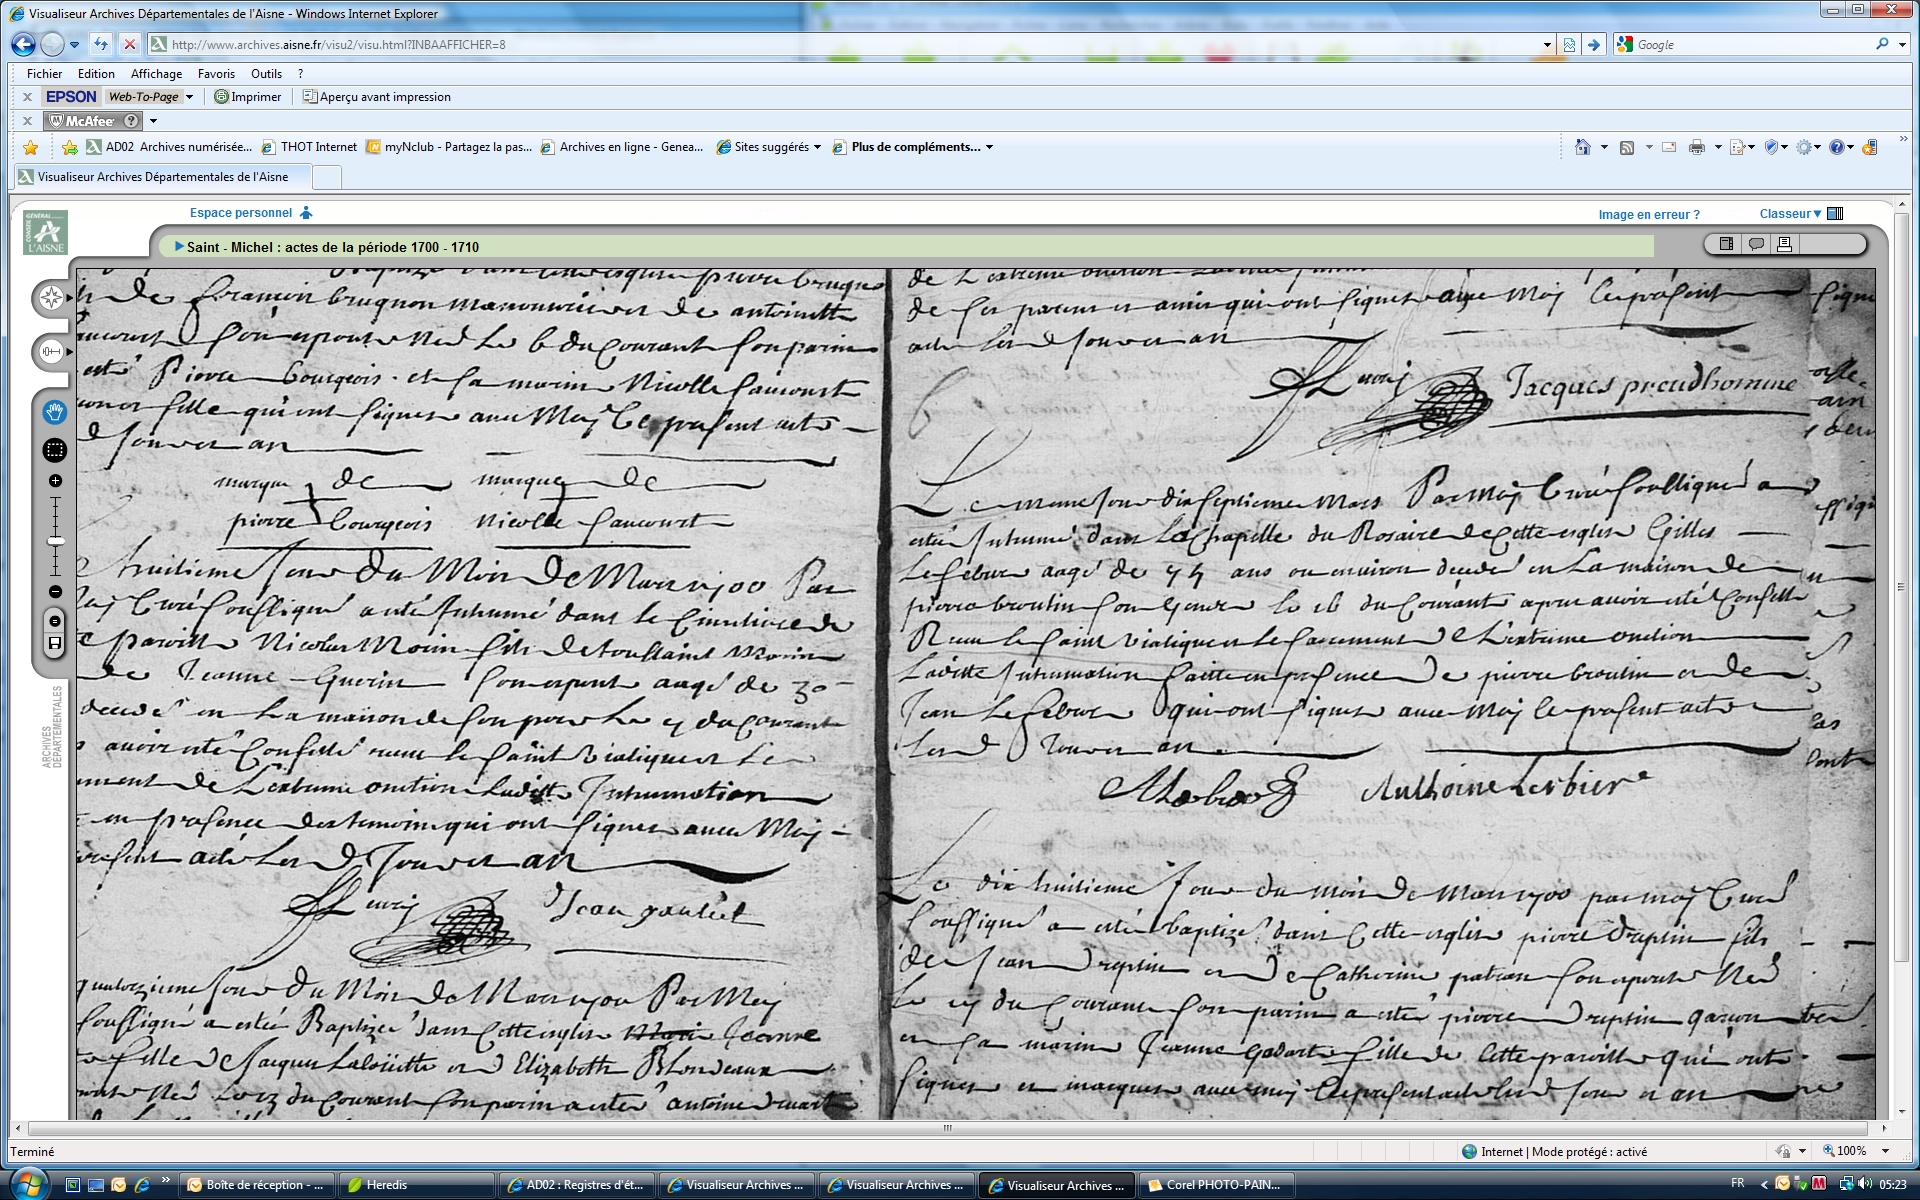 Visualiseur Archives Départementales de l'Aisne - Windows Internet Explorer
http://www.archives.aisne.fr/visu2/visu.html?INBAAFFICHER=8
Google
Fichier Edition Affichage Favoris Outils ?
x EPSON Web-To-Page Imprimer Aperçu avant impression
x McAfee ?
AD02 Archives numérisée... THOT Internet myNclub - Partagez la pas... Archives en ligne - Genea... Sites suggérés Plus de compléments...
Visualiseur Archives Départementales de l'Aisne
CONSEIL GÉNÉRAL L'AISNE
Espace personnel
Image en erreur ? Classeur
Saint - Michel : actes de la période 1700 - 1710
ARCHIVES DÉPARTEMENTALES
pierre brugno
de françoin brugnon manouvrier et de antoinette
faucourt son epouse né le 6 du courant son parin
esté Pierre Bourgeois et sa marin Nicolle faucourt
fille qui ont signer avec Moy le present acte
d jour et an
marque de marque de
pierre bourgeois nicolle faucourt
huitieme Jour du Mois De Mars 1700 Par
Moy Curé soussigné a esté Inhumé dans le Cimitiere de
paroisse Nicolas Morin fils de toussaint Morin
de Jeanne Guerin son espouse aagé de 30
decedé en La maison de son pere Le 7 du Courant
avoir esté Confessé receu le saint viatique et le
ment de L'extreme onction Laditte Inhumation
en presence des temoins qui ont signer avec Moy
present acte Les d Jour et an
Jean gouliet
quatorzieme Jour Du Mois de Mars 1700 Par Moy
soussigné a esté Baptizée dans Cette eglise Marie Jeanne
fille de Jacques Laloüette et d Elizabeth Blondeaux
Née Le 13 du Courant son parin a esté antoine
de L'extreme onction
de ses parens et amis qui ont signer avec Moy Le present
acte Les d Jour et an
6
Jacques preudhomme
Le meme Jour dix septieme Mars Par Moy Curé soussigné a
esté Inhumé dans La Chapelle du Rosaire de Cette eglise Gilles
Lefebure aagé de 74 ans ou environ decedé en La maison de
pierre broutin son Gendre le 16 du Courant apres avoir esté Confessé
Receu le saint viatique et le sacrement de L'extreme onction
Laditte Inhumation faitte en presence de pierre broutin et de
Jean Lefebure qui ont signer avec Moy le present acte
Les d Jour et an
Anthoine Lerbiere
Le dix huitieme Jour du mois de Mars 1700 par moy Curé
soussigné a esté baptizé dans Cette eglise pierre Dreptin fils
de Jean Dreptin et de Catherine patran son epouse Né
Le 17 du Courant son parin a esté pierre Dreptin garcon
et sa marin Jeanne Godart fille de Cette paroisse qui ont
signer et marquer avec moy Le present acte les d Jour et an
Terminé
Internet | Mode protégé : activé 100%
Boîte de réception - ... Heredis AD02 : Registres d'ét... Visualiseur Archives ... Visualiseur Archives ... Visualiseur Archives ... Corel PHOTO-PAIN... FR 05:23